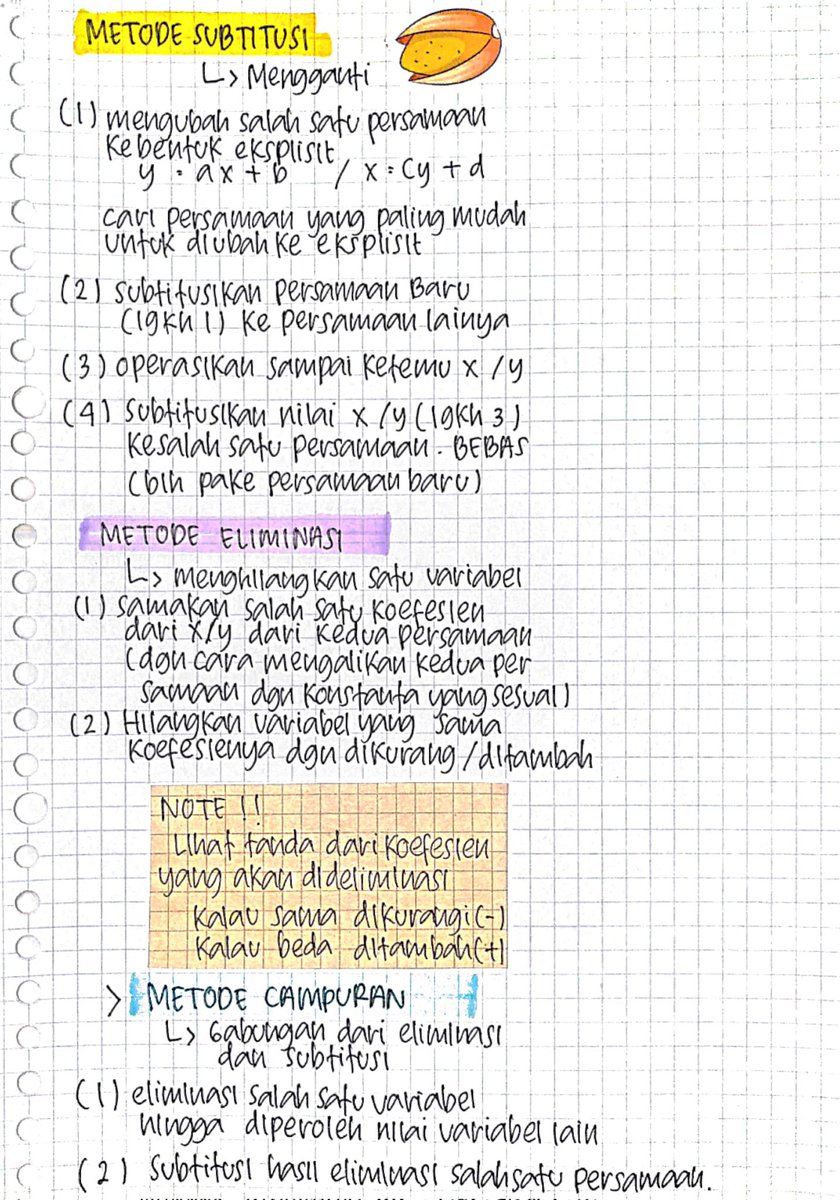 METODE SUBTITUSI
↳ Mengganti
(1) mengubah salah satu persamaan
ke bentuk eksplisit
y = ax + b / x = cy + d
cari persamaan yang paling mudah
untuk diubah ke eksplisit
(2) subtitusikan persamaan Baru
(lgkh 1) ke persamaan lainya
(3) operasikan sampai ketemu x / y
(4) subtitusikan nilai x / y (lgkh 3)
kesalah satu persamaan. BEBAS
(blh pake persamaan baru)
METODE ELIMINASI
↳ menghilangkan satu variabel
(1) samakan salah satu koefesien
dari x/y dari kedua persamaan
(dgn cara mengalikan kedua per
samaan dgn konstanta yang sesuai)
(2) Hilangkan variabel yang sama
koefesienya dgn dikurang / ditambah
NOTE !!
Lihat tanda dari koefesien
yang akan dideliminasi
kalau sama dikurangi (-)
kalau beda ditambah (+)
> METODE CAMPURAN
↳ Gabungan dari eliminasi
dan subtitusi
(1) eliminasi salah satu variabel
hingga diperoleh nilai variabel lain
(2) subtitusi hasil eliminasi salah satu persamaan.